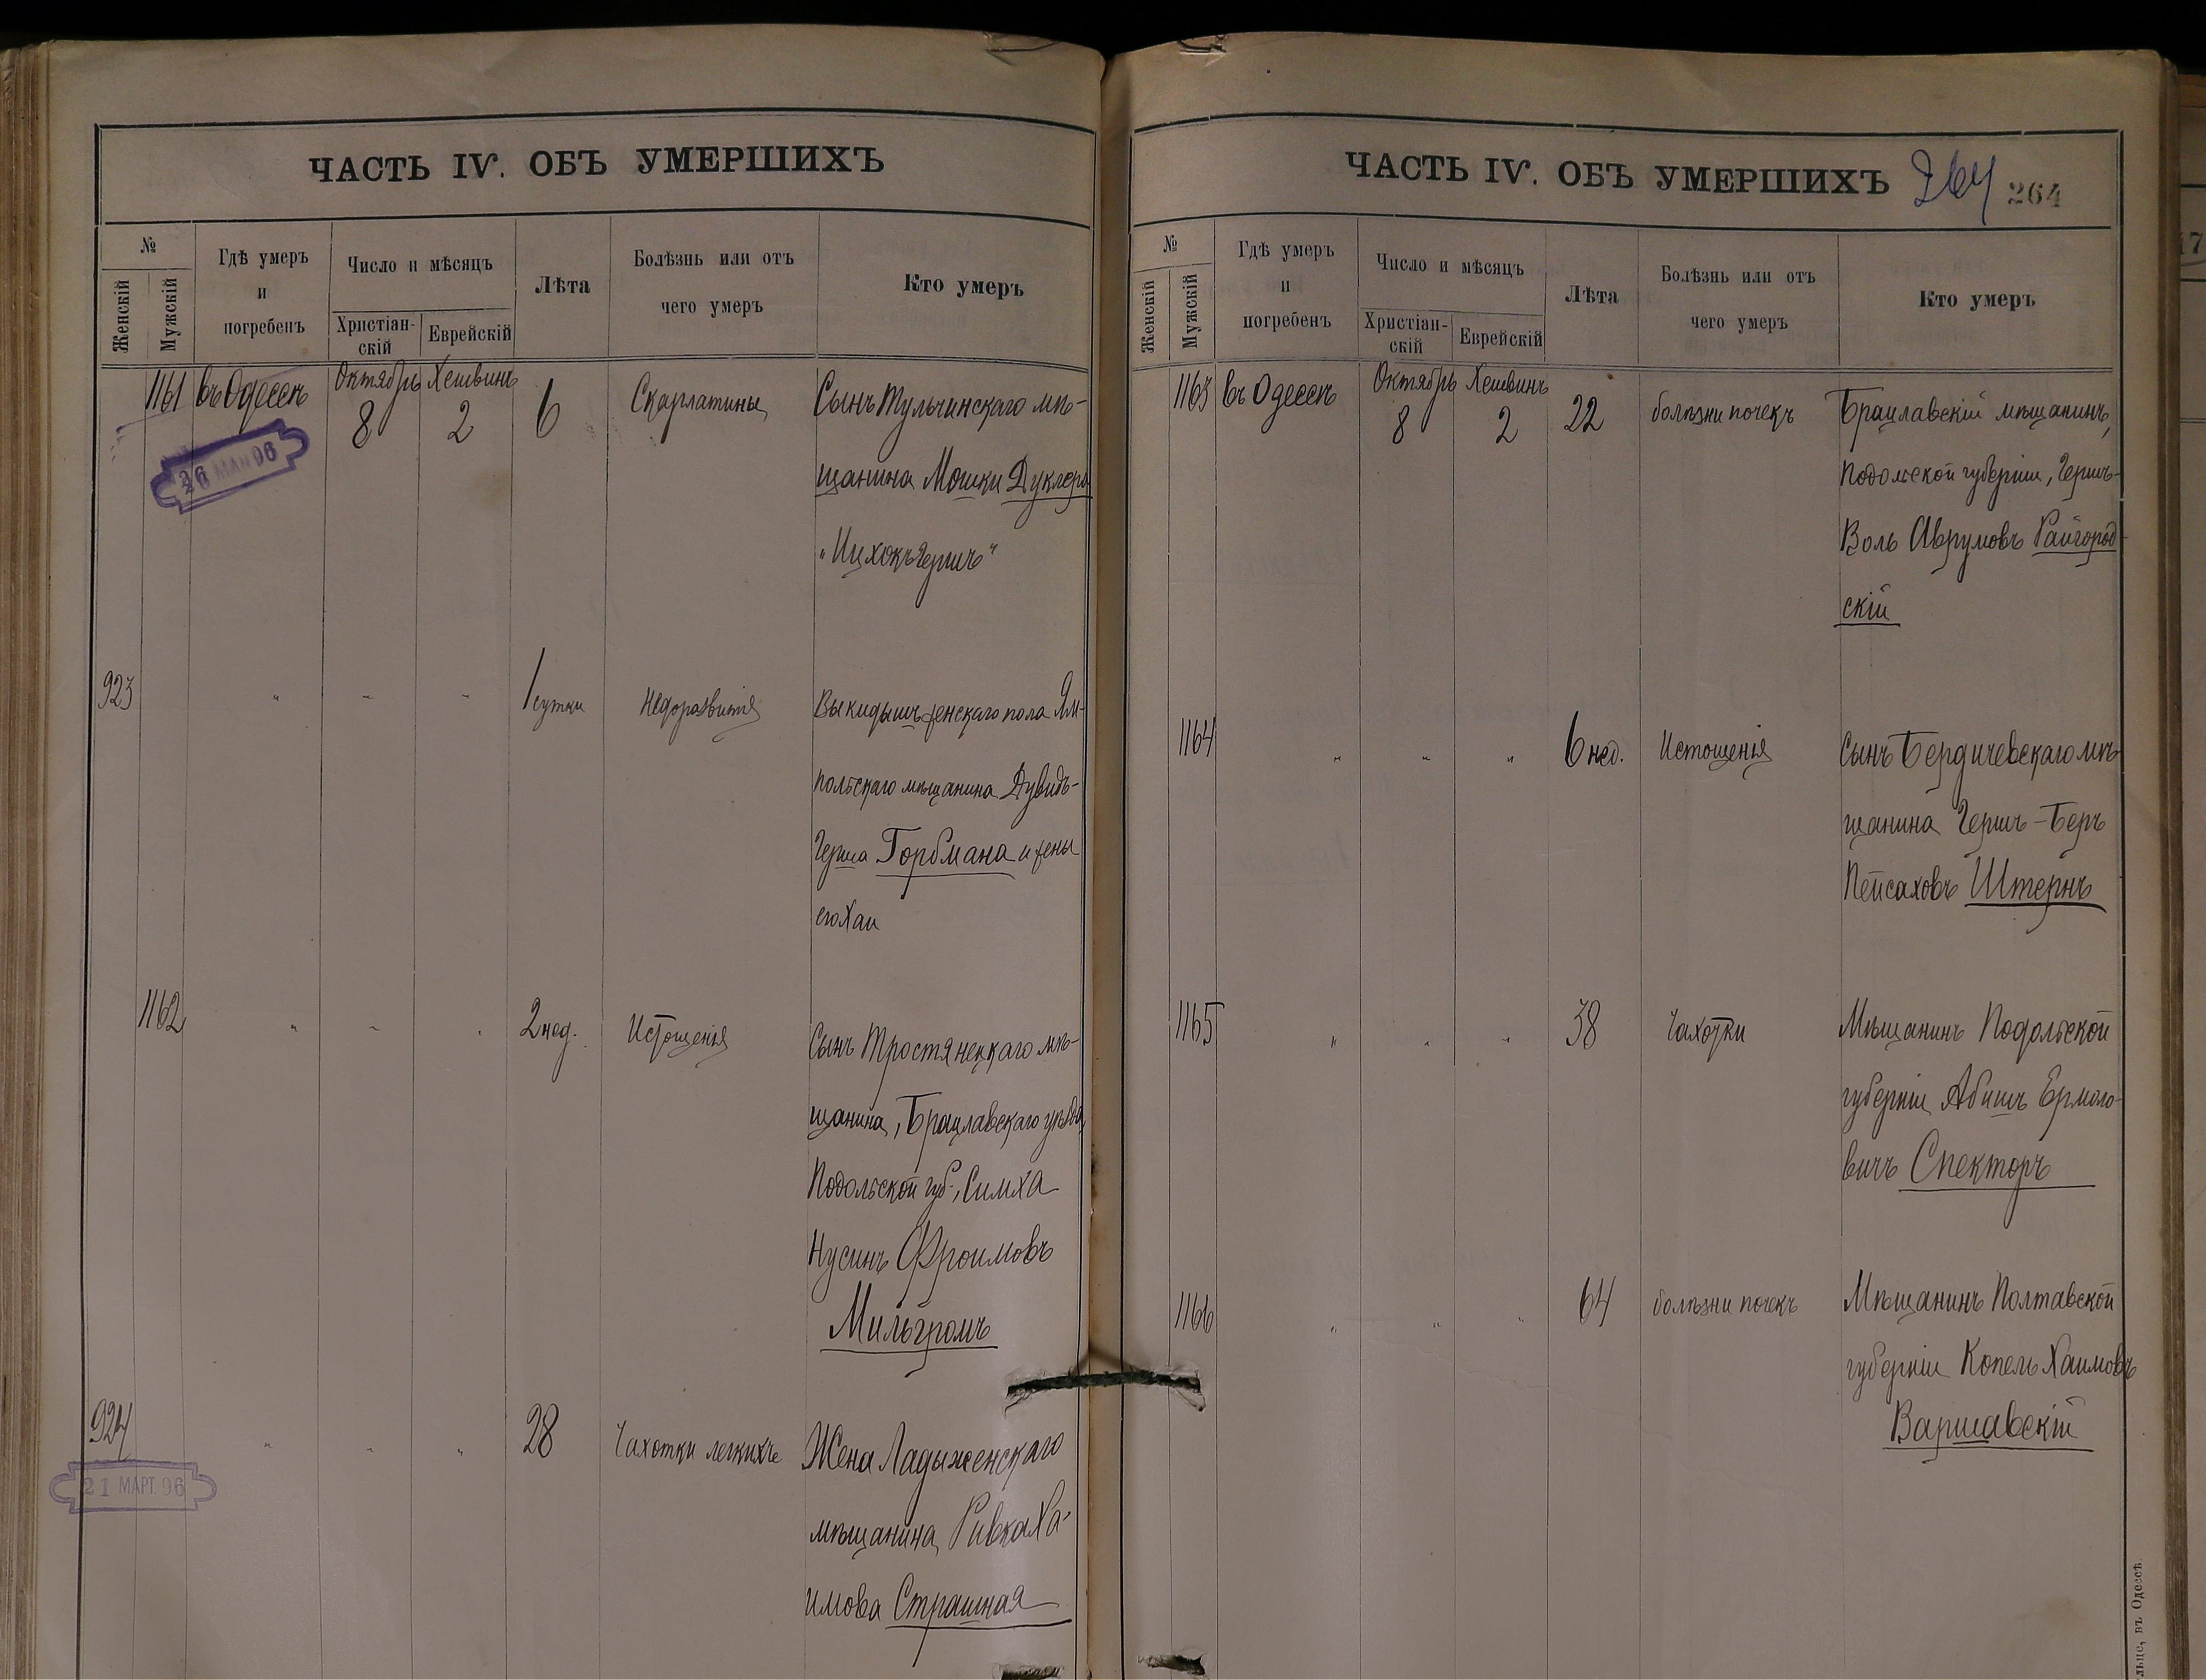 ЧАСТЬ IV. ОБЪ УМЕРШИХЪ
№
Женскій
Мужскій
Гдѣ умеръ
и
погребенъ
Число и мѣсяцъ
Христіан-
скій
Еврейскій
Лѣта
Болѣзнь или отъ
чего умеръ
Кто умеръ
1161 въ Одессѣ Октябрь Хешвинъ 6 Скарлатины Сынъ Тульчинскаго мѣ-
8 2
щанина Мошки Дуклера
"Ицхокъ Гершъ"
26 МАЯ 96
923 " " " 1 сутки Недоразвитія Выкидышъ женскаго пола Ям-
польскаго мѣщанина Дувидъ-
Герша Горбмана и жены
его Хаи
1162 " " " 2 нед. Истощенія Сынъ Тростянецкаго мѣ-
щанина, Брацлавскаго уѣзда
Подольской губ., Симха
Нусинъ Фроимовъ
Мильгромъ
924 " " " 28 Чахотки легкихъ Жена Ладыженскаго
мѣщанина Ривка Ха-
имова Страшная
21 МАРТ. 96
ЧАСТЬ IV. ОБЪ УМЕРШИХЪ 264 264
№
Женскій
Мужскій
Гдѣ умеръ
и
погребенъ
Число и мѣсяцъ
Христіан-
скій
Еврейскій
Лѣта
Болѣзнь или отъ
чего умеръ
Кто умеръ
1163 въ Одессѣ Октябрь Хешвинъ 22 болѣзни почекъ Брацлавскій мѣщанинъ,
8 2
Подольской губерніи, Гершъ-
Воль Аврумовъ Райгород-
скій
1164 " " " 6 нед. Истощенія Сынъ Бердичевскаго мѣ-
щанина Гершъ-Беръ
Пейсаховъ Штернъ
1165 " " " 38 Чахотки Мѣщанинъ Подольской
губерніи Абишъ Ермоло-
вичъ Спекторъ
1166 " " " 64 болѣзни почекъ Мѣщанинъ Полтавской
губерніи Копель Хаимовъ
Варшавскій
въ Одессѣ
17